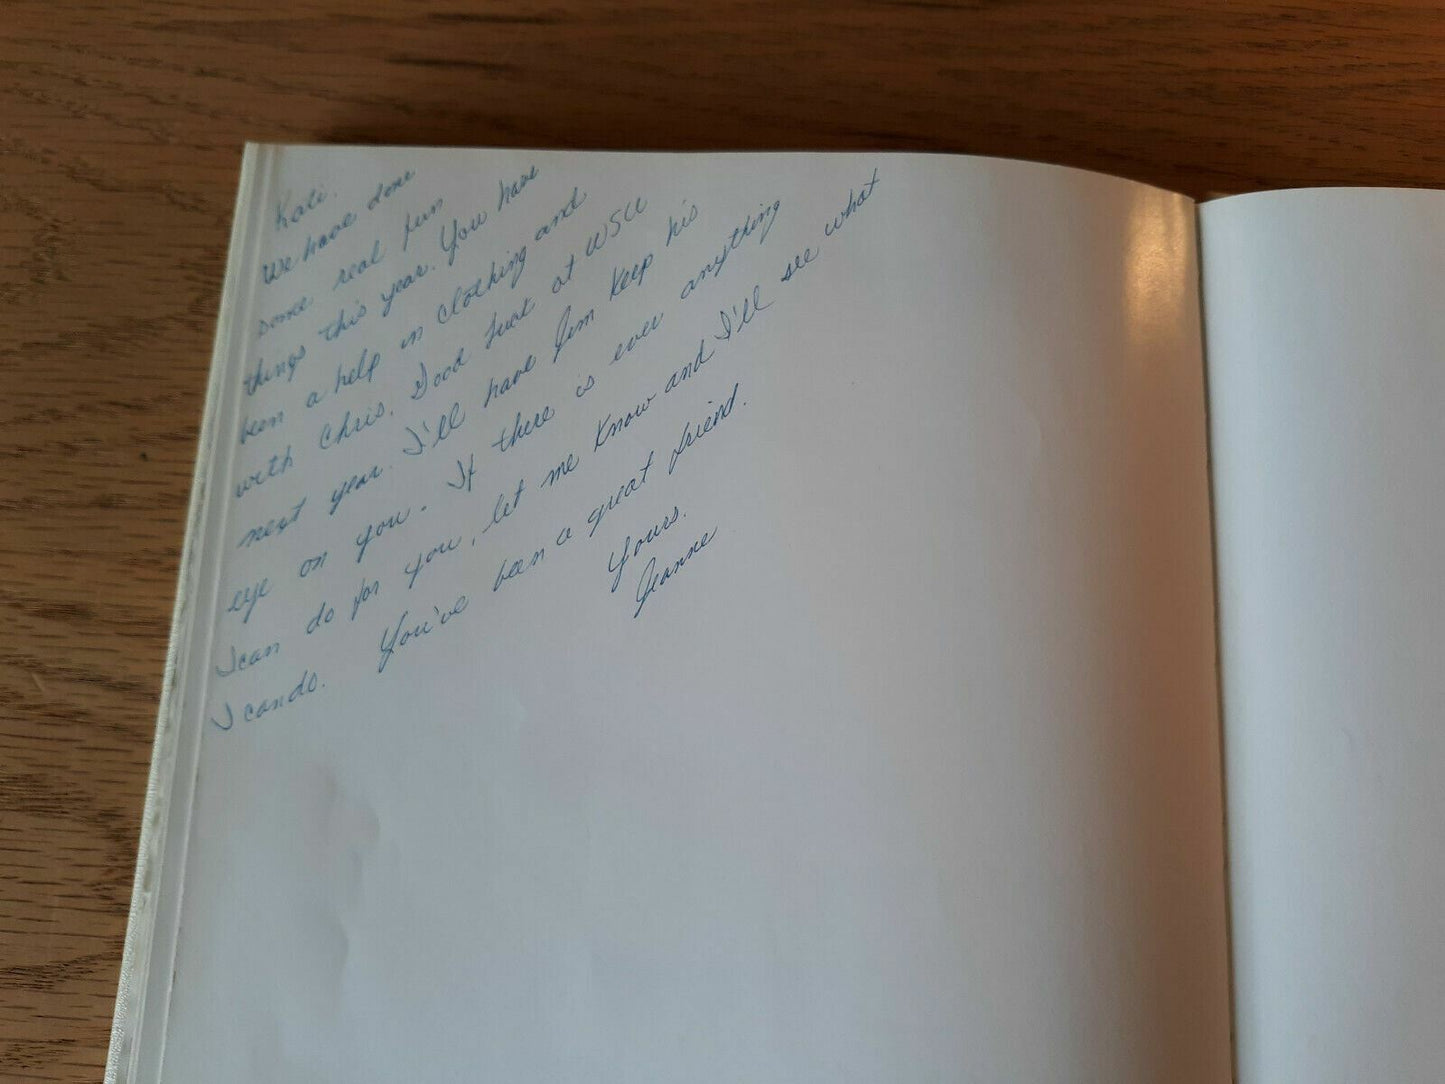 Kati.
We have done
some real fun
things this year. You have
been a help in Clothing and
with Chris. Good Luck at WSU
next year. I'll have Jim Keep his
eye on you. If there is ever anything
I can do for you, let me know and I'll see what
I can do. You've been a great friend.
Yours.
Jeanne